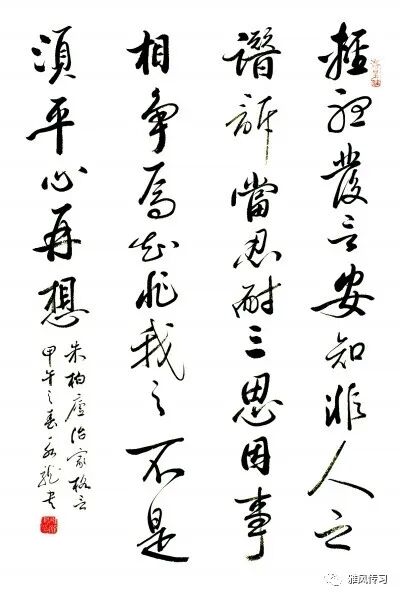 輕聽發言安知非人之
譖訴當忍耐三思因事
相爭焉知非我之不是
須平心再想
朱柏廬治家格言
甲午之春龍书
雅风传习